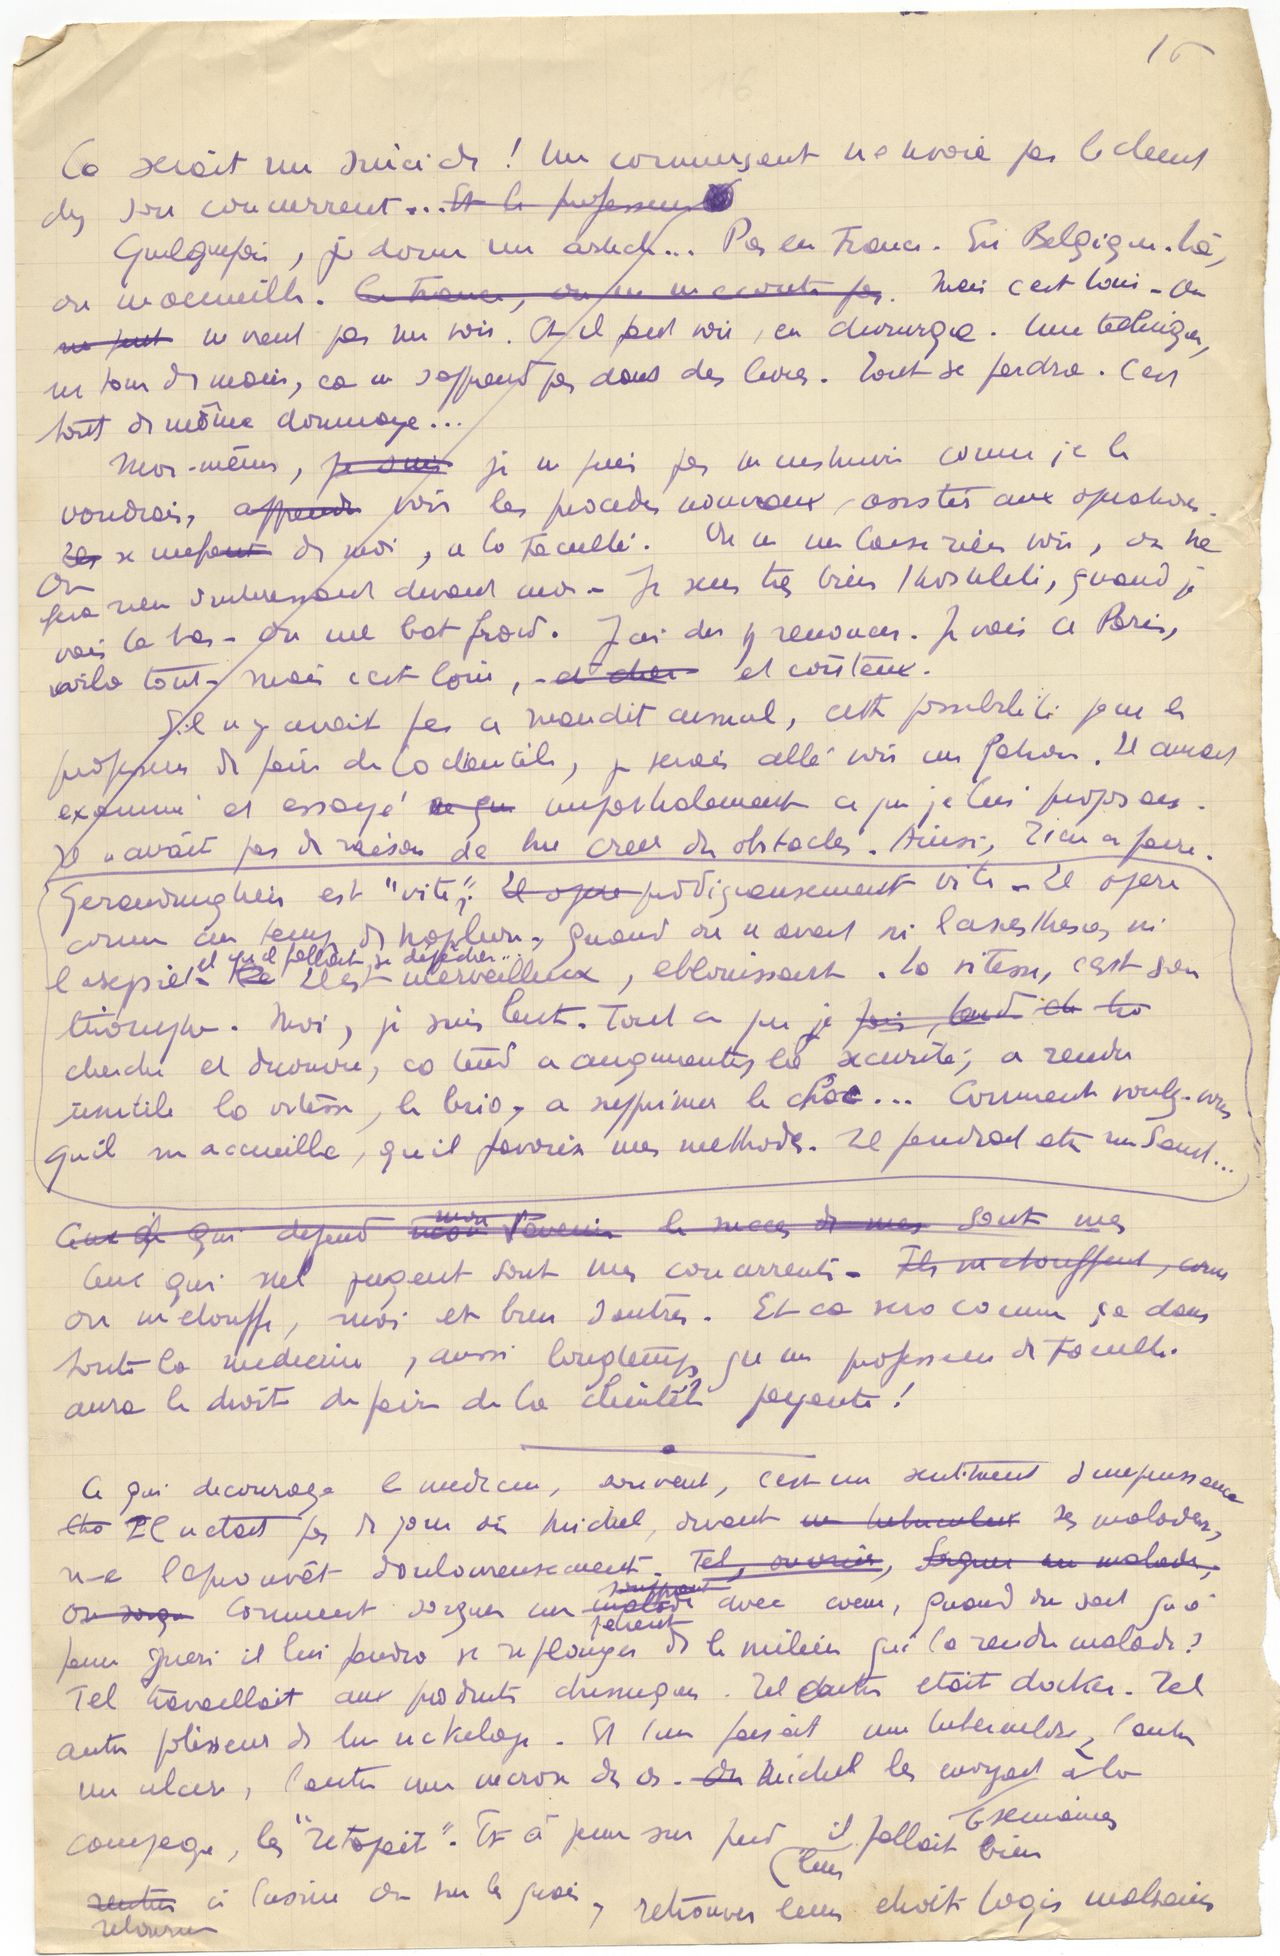 15
Ca serait un suicide ! Un commerçant n'envoie pas le client
chez son concurrent... Et le professeur
Quelquefois, je donne un article... Pas en France. En Belgique. Là,
on m'accueille. En France, on ne m'ecoute pas. Mais c'est loin - On
ne peut ne vient pas me voir. Et il faut voir, en chirurgie. Une technique,
un tour de main, ca ne s'apprend pas dans des livres. Tout se perdra. C'est
tout de même dommage...
Moi-même, je suis je ne puis pas m'instruire comme je le
voudrais, apprendre voir les procedes nouveaux, assister aux operations.
Les se mefient de moi, a la Faculté. On ne me laisse rien voir, on ne
On
fera rien d'interessant devant moi - Je sens tres bien l'hostilité, quand je
vais la bas - On me bat froid. J'ai du y renoncer. Je vais a Paris,
voila tout - Mais c'est loin, et cher et coûteux.
S'il n'y avait pas ce maudit cumul, cette possibilité pour les
professeurs de faire de la clientèle, je serais allé voir un patron. Il aurait
examiné et essayé ce que impartialement ce que je lui propose.
Il n'avait pas de raison de me creer des obstacles. Ainsi, rien a faire.
Geraudinghein est "vite". Il opere prodigieusement vite - Il opere
comme au temps de Napoleon, quand on n'avait ni l'anesthesie, ni
et qu'il fallait se depêcher...
l'asepsie - Il est merveilleux, eblouissant. La vitesse, c'est son
triomphe. Moi, je suis lent. Tout ce que je fais, tend
cherche et decouvre, ca tend a augmenter la securité, a rendre
inutile la vitesse, le brio, a supprimer le choc... Comment voulez-vous
qu'il m'accueille, qu'il favorise mes methodes. Il faudrait etre un Saint...
mon
Ceux de qui depend l'avenir le succes de mes sont mes
Ceux qui me jugent sont mes concurrents - Ils m'etouffent, comme
on m'étouffe, moi et bien d'autres. Et ca sera comme ça dans
toute la medecine, aussi longtemps qu'un professeur de Faculté
aura le droit de faire de la clientèle payante !
Ce qui decourage le medecin, souvent, c'est un sentiment d'impuissance
Il n'etait pas de jour où Michel, devant un tuberculeux ses malades,
ne l'eprouvât douloureusement. Tel, ouvrier, Soigner un malade,
souffrant
On soigne Comment soigner un malade avec coeur, quand on sait qu'à
patient
peine gueri il lui faudra se replonger dans le milieu qui l'a rendu malade ?
Tel travaillait aux produits chimiques. Tel autre etait docker. Tel
autre polisseur de nickelage. Et l'un faisait une tuberculose, l'autre
un ulcere, l'autre une necrose des os. On Michel les envoyait à la
6 semaines
campagne, les "retapait". Et à peine sur pied il fallait bien
leur
rentrer à l'usine ou sur le quai, retrouver leur etroit logis malsain
retourner